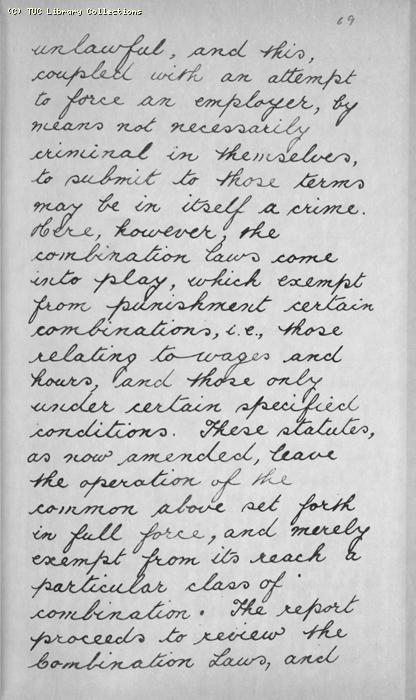 (C) TUC Library Collections
69
unlawful, and this,
coupled with an attempt
to force an employer, by
means not necessarily
criminal in themselves,
to submit to those terms
may be in itself a crime.
Here, however, the
combination laws come
into play, which exempt
from punishment certain
combinations, i.e., those
relating to wages and
hours, and those only
under certain specified
conditions. These statutes,
as now amended, leave
the operation of the
common above set forth
in full force, and merely
exempt from its reach a
particular class of
combination. The report
proceeds to review the
Combination Laws, and